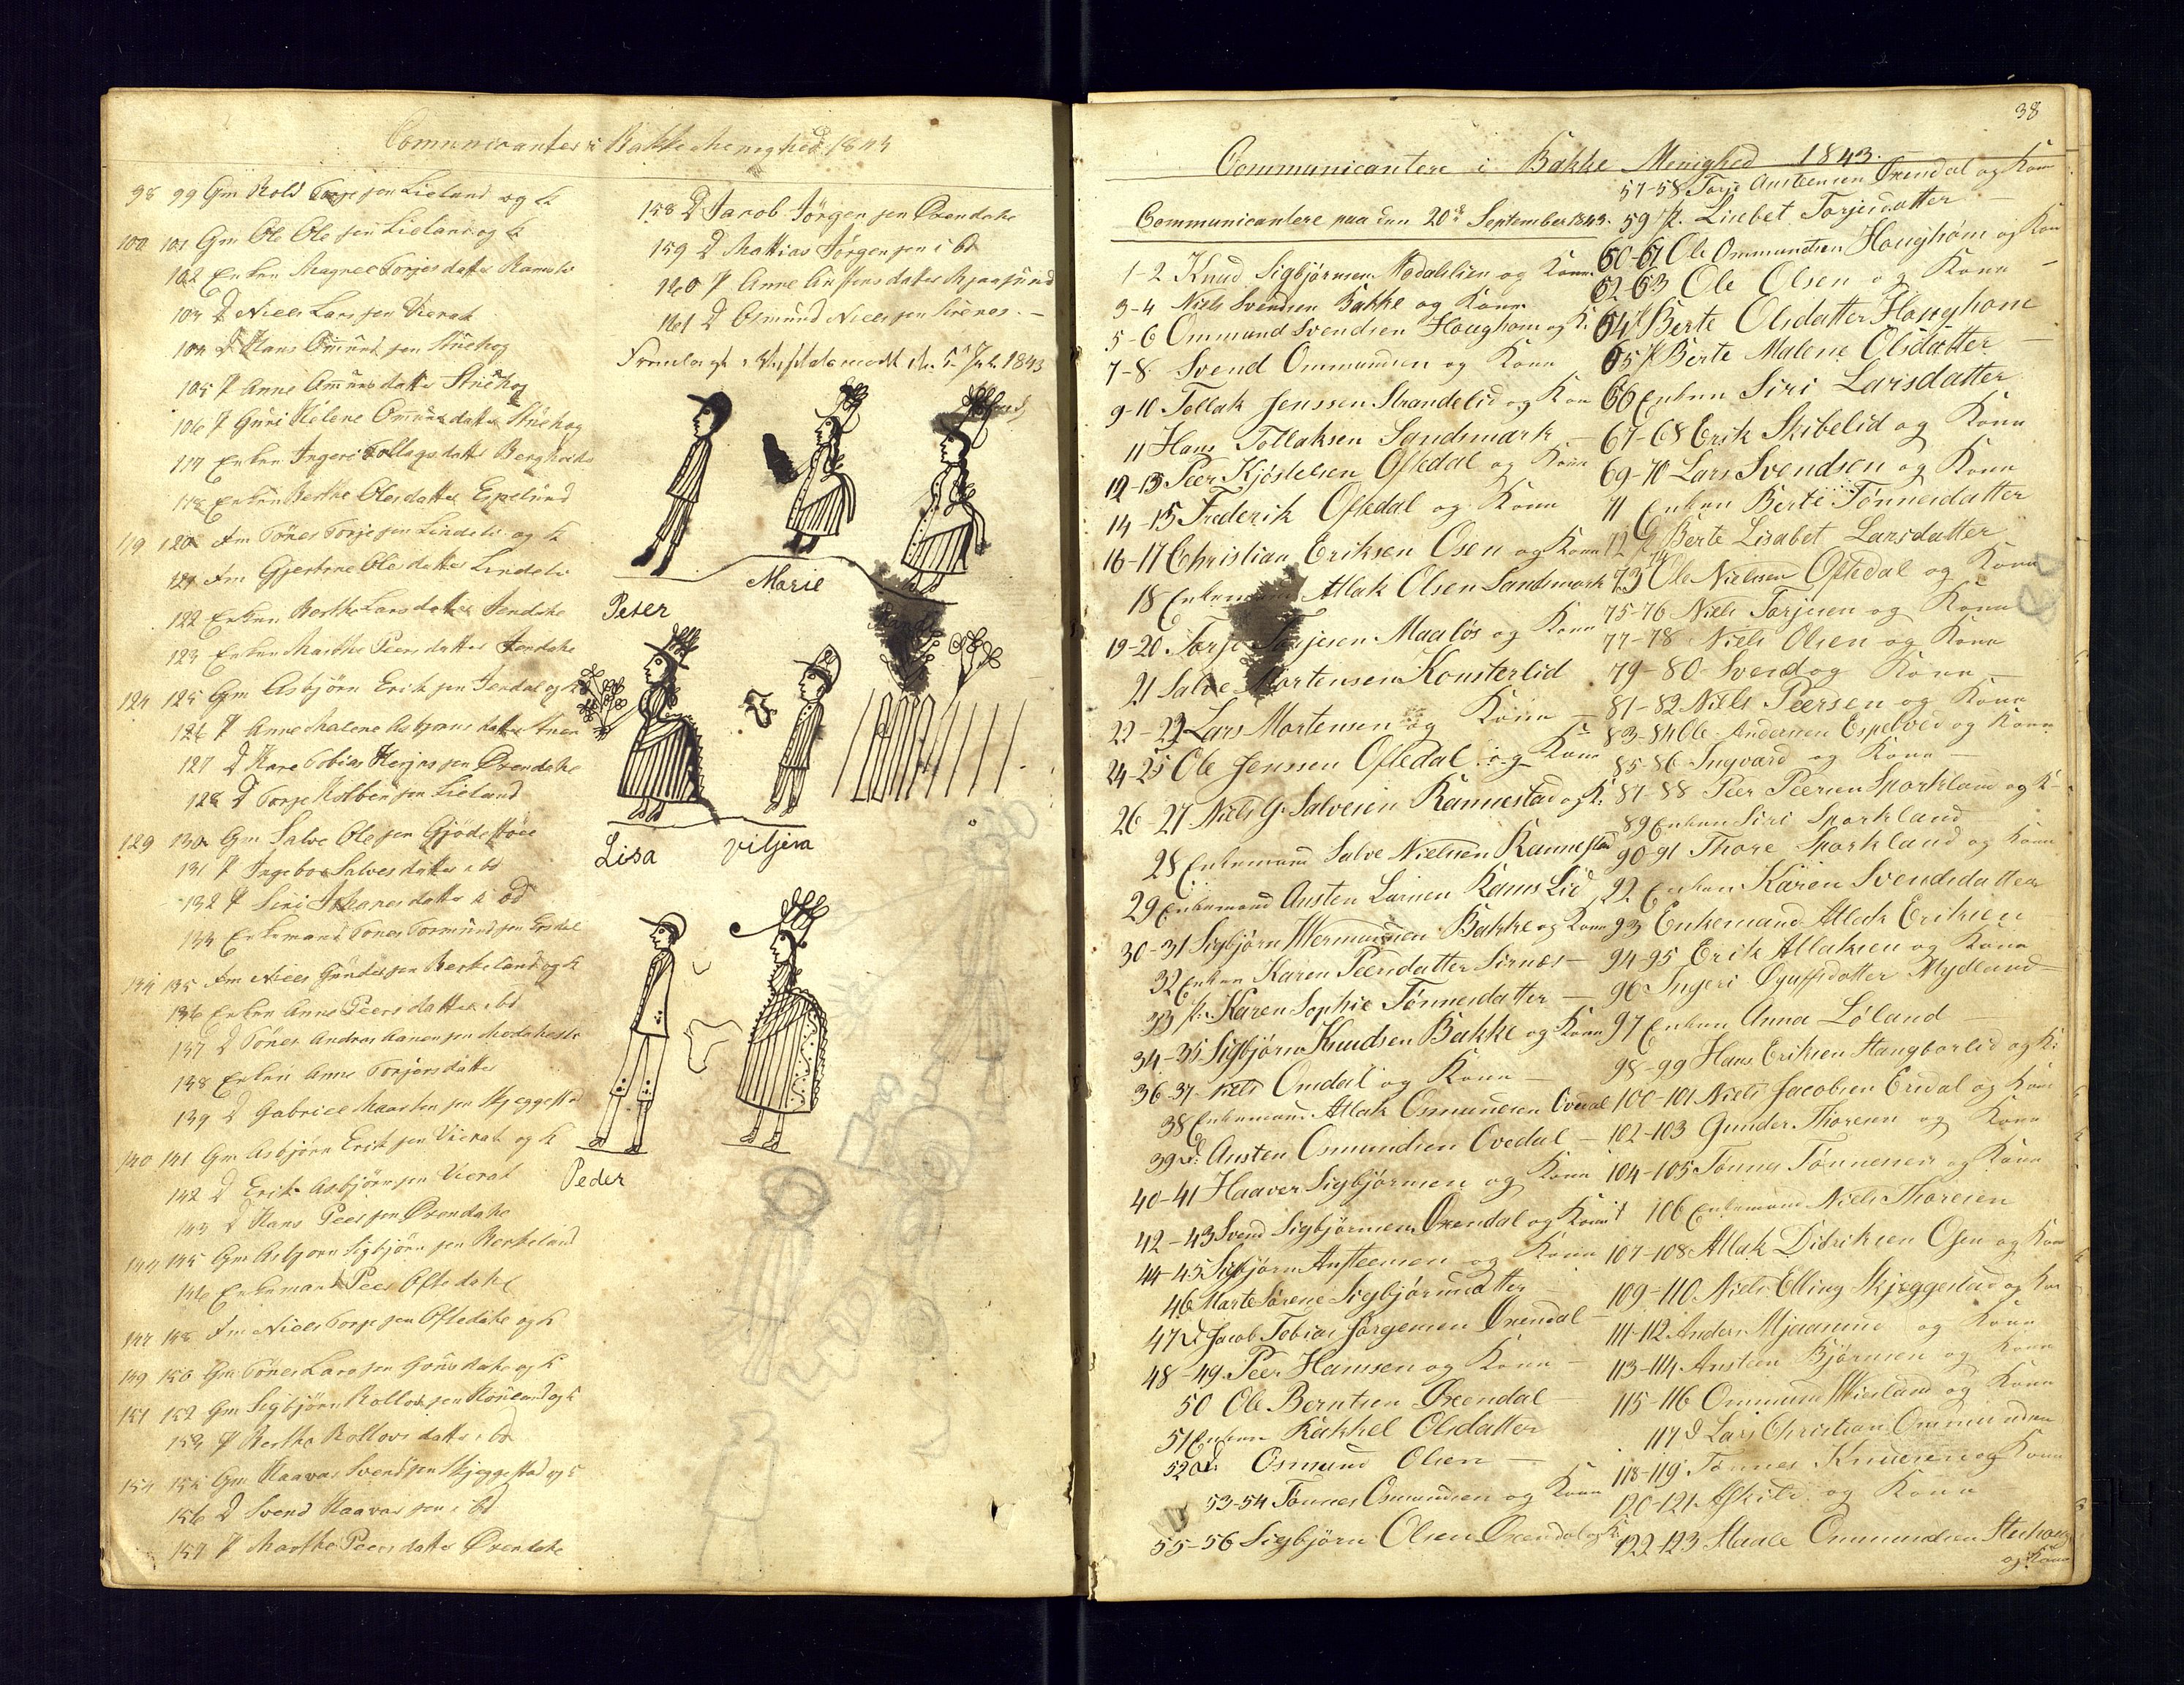 Communicanter i Bakke Menighed 1843
98 99 Gm Rold Torje sen Lieland og K
100 101 Gm Ole Ole sen Lieland og K
102 Enken Magnee Torjes datter
103 D Niels Lars sen Vierak
104 D Hans Omund sen Stuehog
105 P Anne Omunds datter Stuehog
106 P Guri Helene Omunds datter Stuehog
117 Enken Ingeri Tollags datter
118 Enken Berthe Oles datter Espelund
119 120 Fm Tönes Torje sen Lindeli og K
121 Fm Gjertine Oles datter Lindeli
122 Enken Berthe Lars datter
123 Enken Marthe Peers datter
124 125 Gm Asbjörn Erik sen og K
126 P Anne Malene Asbjöns datter
127 D Tobias sen Øvendahl
128 D Torje sen Lieland
129 130 Gm Salve Ole sen
131 P Ingebor Salves datter i bd
132 P Siri datter i bd
133 Enkemand Tones Tormund sen
134 135 Fm Niels Gunder sen Berkeland og K
136 Enken Anne Peers datter i bd
137 D Tönes Andras
138 Enken Anne Torjers datter
139 D Gabriel Maarten sen Skjeggesta
140 141 Gm Asbjörn Erik sen Vierak og K
142 D Erik Asbjörn sen Vierak
143 D Hans Peer sen Øvendahl
144 145 Gm Asbjorn Sigbjörn sen Berkeland
146 Enkemand Peer Oftedahl
147 148 Fm Niels Torje sen Oftedahl og K
149 150 Gm Tönes Lars sen og K
151 152 Gm Sigbjörn Rollov sen og K
153 P Berthe Rollovs datter i bd
154 155 Gm Haavar Svend sen Skjeggestad og K
156 D Svend Haavar sen i bd
157 P Marthe Peers datter Øvendahl
158 D Jacob Jörgen sen Øvendahl
159 D Mattias Jörgen sen i bd
160 P Anne Austens datter
161 D Osmund Niels sen Sirenes
1843
Peter
Marie
Lisa
viljem
Peder
38
Communicantere i Bakke Menighed 1843.
Communicantere paa den 20de September 1843.
1-2 Knud Sigbjørnsen og Kone
3-4 Niels Svendsen Bakke og Kone
5-6 Ommund Svendsen Houghom og K.
7-8 Svend Ommundsen og Kone
9-10 Tollak Jenssen Strandelid og Kone
11 Hans Tollaksen Sandsmark
12-13 Peer Kjøstelsen Oftedal og Kone
14-15 Frederik Oftedal og Kone
16-17 Christian Eriksen Osen og Kone
18 Enkemand Atlak Olsen Sandsmark
19-20 Torje Torjesen Maaløs og Kone
21 Salve Mortensen Konsterlid
22-23 Lars Mortensen og Kone
24-25 Ole Jenssen Oftedal og Kone
26-27 Niels G. Salvesen Rannestad og K:
28 Enkemand Salve Nielsen Rannestad
29 Enkemand Austen Larsen Rams Lid
30-31 Sigbjørn Hermansen Bakke og Kone
32 Enken Karen Peersdatter Sirnes
33 P. Karen Sophie Tønnesdatter
34-35 Sigbjørn Knudsen Bakke og Kone
36-37 Niels Omdal og Kone
38 Enkemand Atlak Osmundsen Ovedal
39 d. Austen Osmundsen Ovedal
40-41 Haaver Sigbjørnsen og Kone
42-43 Svend Sigbjørnsen Øvendal og Kone
44-45 Sigbjørn Austeensen og Kone
46 Marte Sørene Sigbjørnsdatter
47 d. Jacob Tobias Jørgensen Øvendal
48-49 Peer Hanssen og Kone
50 Ole Berntsen Øvendal
51 Enken Rakkel Olsdatter
52 d. Osmund Olsen
53-54 Tønnes Osmundsen og Kone
55-56 Sigbjørn Olsen Øvendal og K:
57-58 Torje Austensen Øvendal og Kone
59 P. Lisebet Torjesdatter
60-61 Ole Ommundsen Houghom og Kone
62-63 Ole Olsen og Kone
64 P Berte Olsdatter Houghom
65 P Berte Malene Olsdatter
66 Enken Siri Larsdatter
67-68 Erik Skibelid og Kone
69-70 Lars Svendsen og Kone
71 Enken Berte Tønnesdatter
72 P Berte Lisabet Larsdatter
73 Ole Nielsen Oftedal og Kone
75-76 Niels Torjesen og Kone
77-78 Niels Olsen og Kone
79-80 Svend og Kone
81-82 Niels Peersen og Kone
83-84 Ole Andersen Espetved og Kone
85-86 Ingvard og Kone
87-88 Peer Peersen Sporkland og K
89 Enken Siri Sporkland
90-91 Thore Sporkland og Kone
92 Enken Karen Svendsdatter
93 Enkemand Atlak Eriksen
94-95 Erik Atlaksen og Kone
96 Ingeri Mydland
97 Enken Anna Løland
98-99 Hans Eriksen Stangborlid og K:
100-101 Niels Jacobsen Eredal og Kone
102-103 Gunder Thoresen og Kone
104-105 Tønnes Tønnesen og Kone
106 Enkemand Niels Thoresen
107-108 Atlak Didriksen Osen og Kone
109-110 Niels Elling Skjeggestad og Kone
111-112 Anders Mjaasund og Kone
113-114 Austeen Bjørnsen og Kone
115-116 Ommund og Kone
117 d Lars Christian Ommundsen
118-119 Tønnes Knudsen og Kone
120-121 Askild og Kone
122-123 Staale Ommundsen Stuehoug
og Kone